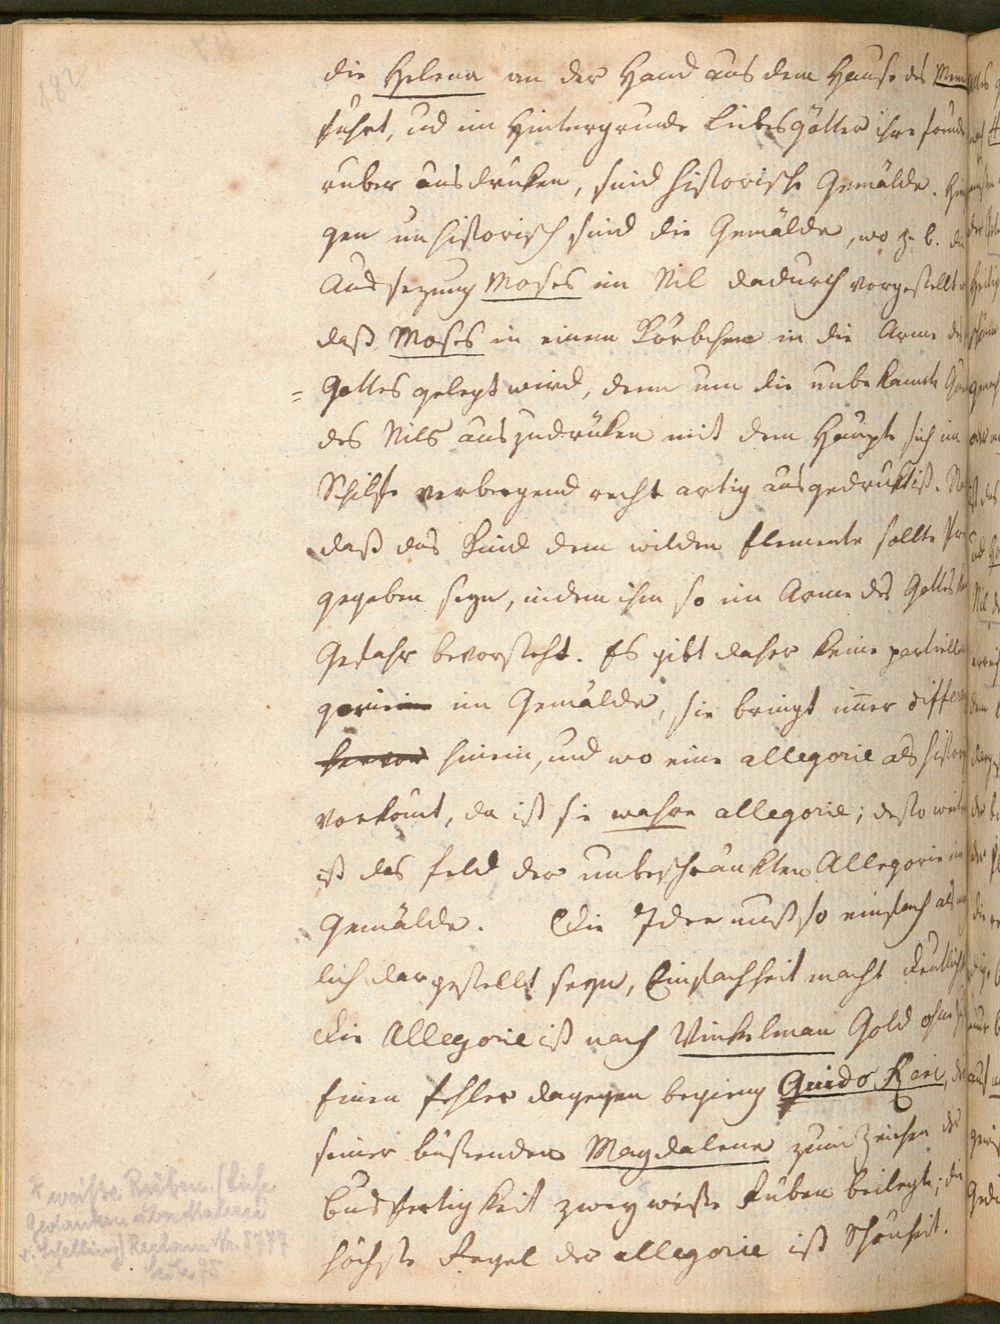 182
die Helena an der Hand aus dem Hause des Mene
führt, und im Hintergrunde Liebesgötter ihre Freude
rüber ausdruken, sind historische Gemälde. Hin
gen unhistorisch sind die Gemälde, wo z. b. die
Aussezung Moses im Nil dadurch vorgestellt
daß Moses in einem Körbchen in die Arme des
= Gottes gelegt wird, denn um die unbekannte
des Nils auszudrüken mit dem Haupte sich im
Schilfe verbergend recht artig ausgedrukt ist.
daß das Kind dem wilden Elemente sollte Pr
gegeben seyn, indem ihm so im Arme des Gottes
Gefahr bevorsteht. Es gibt daher keine partielle
im Gemälde, sie bringt imer differenz
hervor hinein, und wo eine allegorie als histor
vorkomt, da ist sie wahre allegorie; desto weiter
ist das Feld der unbeschränkten Allegorie im
Gemälde. Die Idee muß so einfach als
lich dargestellt seyn, Einfachheit macht deutlich
die Allegorie ist nach Winkelman Gold ohne
Einen Fehler dagegen begieng Guido Reni, der
seiner büßenden Magdalena zum Zeichen der
Busfertigkeit zwey weiße Ruben beilegte; die
höchste Regel der allegorie ist Schönheit.
* weiße Rüben. (Siehe
Gedanken über Malerei
v. Schelling) Reclam Nr. 5777
Seite 75